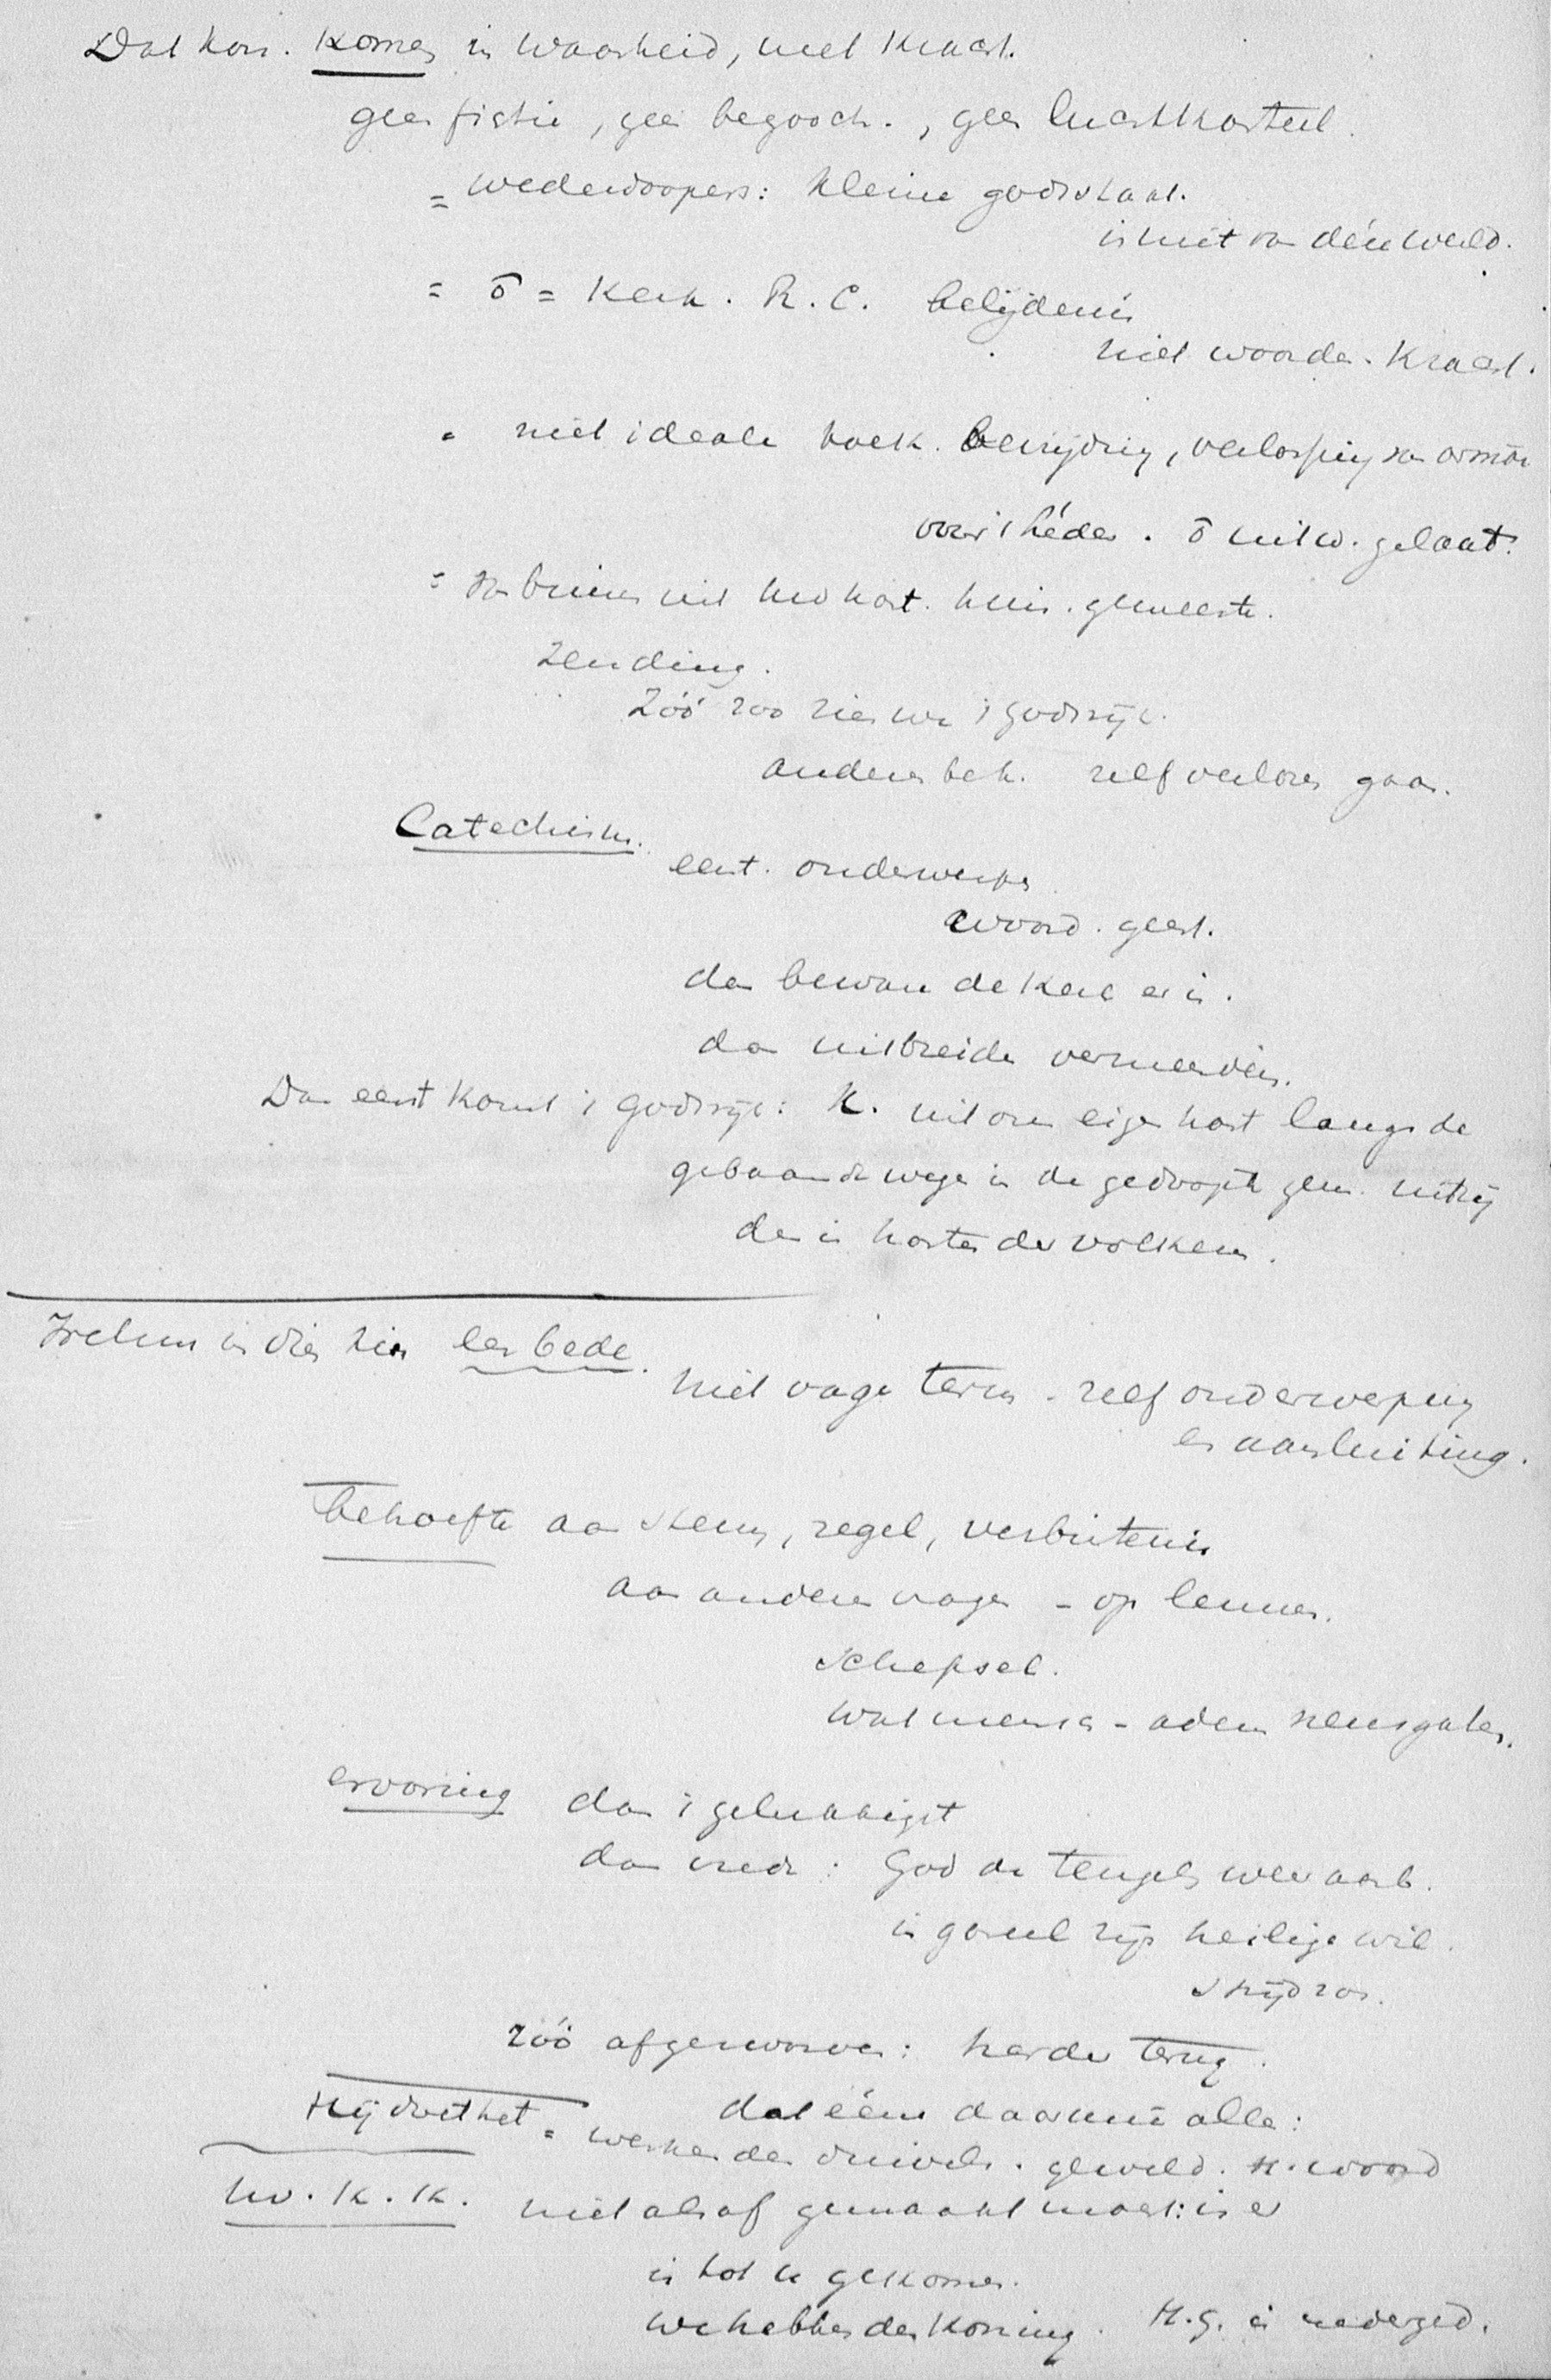 Dat kon. komen in waarheid, met kracht.
geen fictie, geen begooch., geen luchtkasteel.
= wederdoopers: kleine godsstaat.
is niet van déze wereld.
= ō = Kerk. R.C. belijdenis
niet woorden. Kracht.
= niet ideale boek. bevrijding, verlossing van
voor 't héden. ō uitw. gelaat.
= van binnen uit uw hart. huis. gemeente.
Zending.
Zóó zoo zien we 't godsrijk.
anderen bek. zelf verloren gaan.
Catechism.
eerst. onderwerpen
woord. geest.
dan bewaar de Kerk er in.
dan uitbreiden vermeerder.
Dan eerst komt 't godsrijk: K. uit ons eigen hart langs de
gebaande wegen in de gedoopte gem. uitrij
den in harten der volken.
in dien zin een bede.
niet vage term - zelf onderwerping
en aansluiting.
behoefte aan steun, regel, verbintenis
aan anderen vragen - op leunen.
Schepsel.
wat mensch - adem neusgaten.
ervaring dan 't gelukkigst
dan vrede: God de teugels weer aanb.
in gareel zijn heilige wil.
strijd voor.
zóó afgeworpen: harder terug.
dat ééne daarmee alle:
Hij doet het = werken des duivels. geweld. H. woord
Uw. K. K. niet alsof gemaakt moest: is er
is tot u gekomen.
we hebben den Koning. H.G. is nederged.